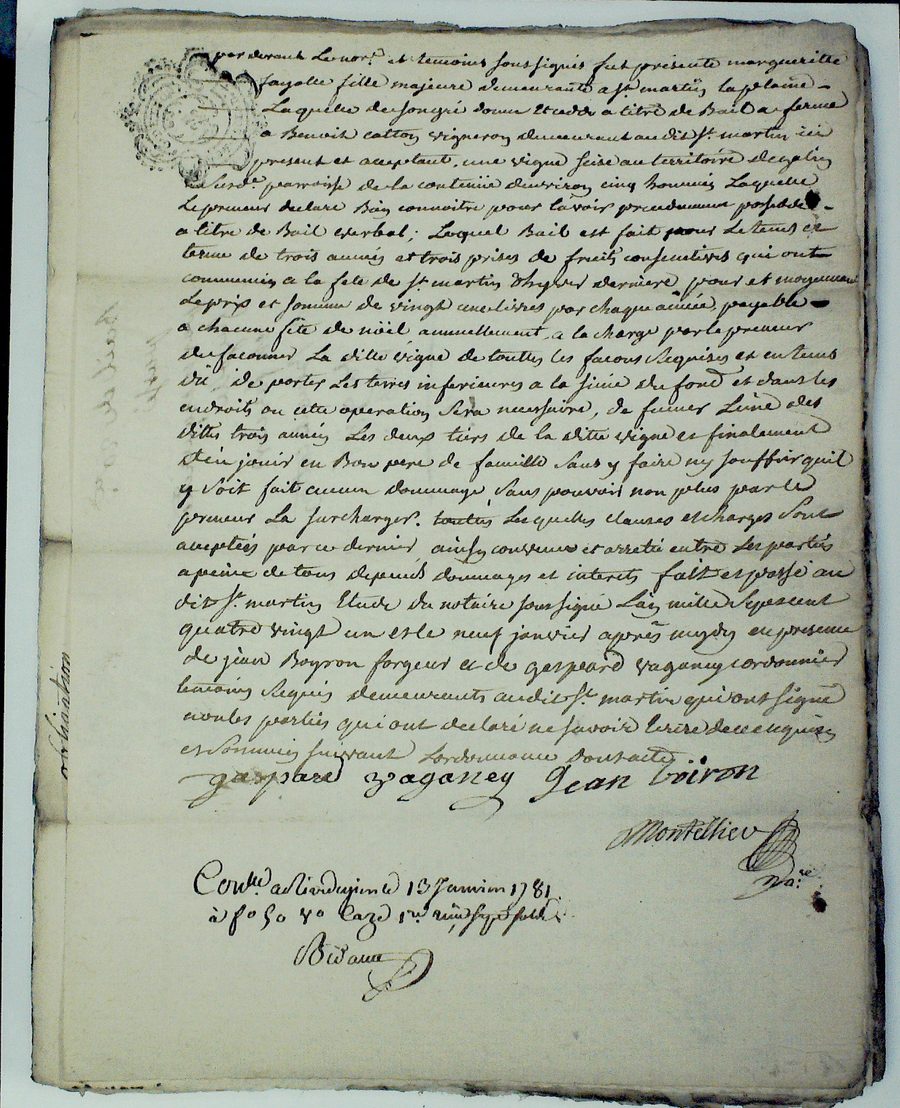 par devant Le nor.e et temoins soussignés fut presente margueritte
fayolle fille majeure demeurante a st martin la plaine –
Laquelle de son gré donne et cedde a titre de Bail a ferme
a Benoit catton vigneron demeurant au dit st. martin ici
present et aceptant, une vigne seise au territoire de
parroisse de la contenüe d'environ cinq hommées Laquelle
Le preneur declare Bien connoitre pour l'avoir possédée –
a titre de Bail verbal; Lequel Bail est fait pour Le tems et
terme de trois années et trois prises de fruits consecutives qui ont
commencés a la fete de st martin d'hyver derniere, pour et moyennant
Le prix et somme de vingt une livres par chaque année, payable –
a chacune fête de nöel annuellement, a la charge par le preneur
de façonner La ditte vigne de touttes les façons Requises et en tems
dû, de porter Les terres inferieures a la sime du fond et dans les
endroits ou cette operation sera necessaire, de fumer L'une des
dittes trois années Les deux tiers de la ditte vigne et finalement
d'en jouir en Bon pere de famille sans y faire ny souffrir quil
y soit fait aucun dommage, sans pouvoir non plus par le
preneur La surcharger. touttes Lesquelles clauses et charges sont
aceptées par ce dernier ainsy convenu et arreté entre Les parties
a peine de tous depends dommages et interets fait et passé au
dit st. martin Etude du notaire soussigné L'an mille sept cent
quatre vingt un et le neuf janvier après mydy en presence
de jean Boyron forgeur et de gaspard vaganey cordonnier
temoins Requis demeurants audit st. martin qui ont signé
non les parties qui ont declaré ne savoir Ecrire de ce enquises
et sommées suivant L'ordonnance
gaspard vaganey Jean Boiron
Montellier
No.re
Con.lle a Rivedegier le 13 Janvier 1781
à f° 50 v° Caze 1re sept sols